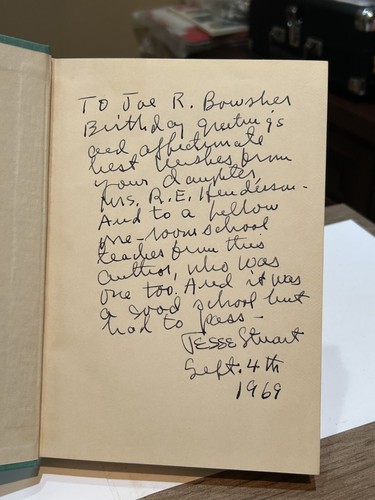 To Joe R. Bowsher
Birthday greetings
and affectionate
best wishes from
your daughter,
Mrs. R. E. Henderson.
And to a fellow
one-room school
teacher from this
author, who was
one too. And it was
a good school but
had to pass-
Jesse Stuart
Sept. 4th
1969